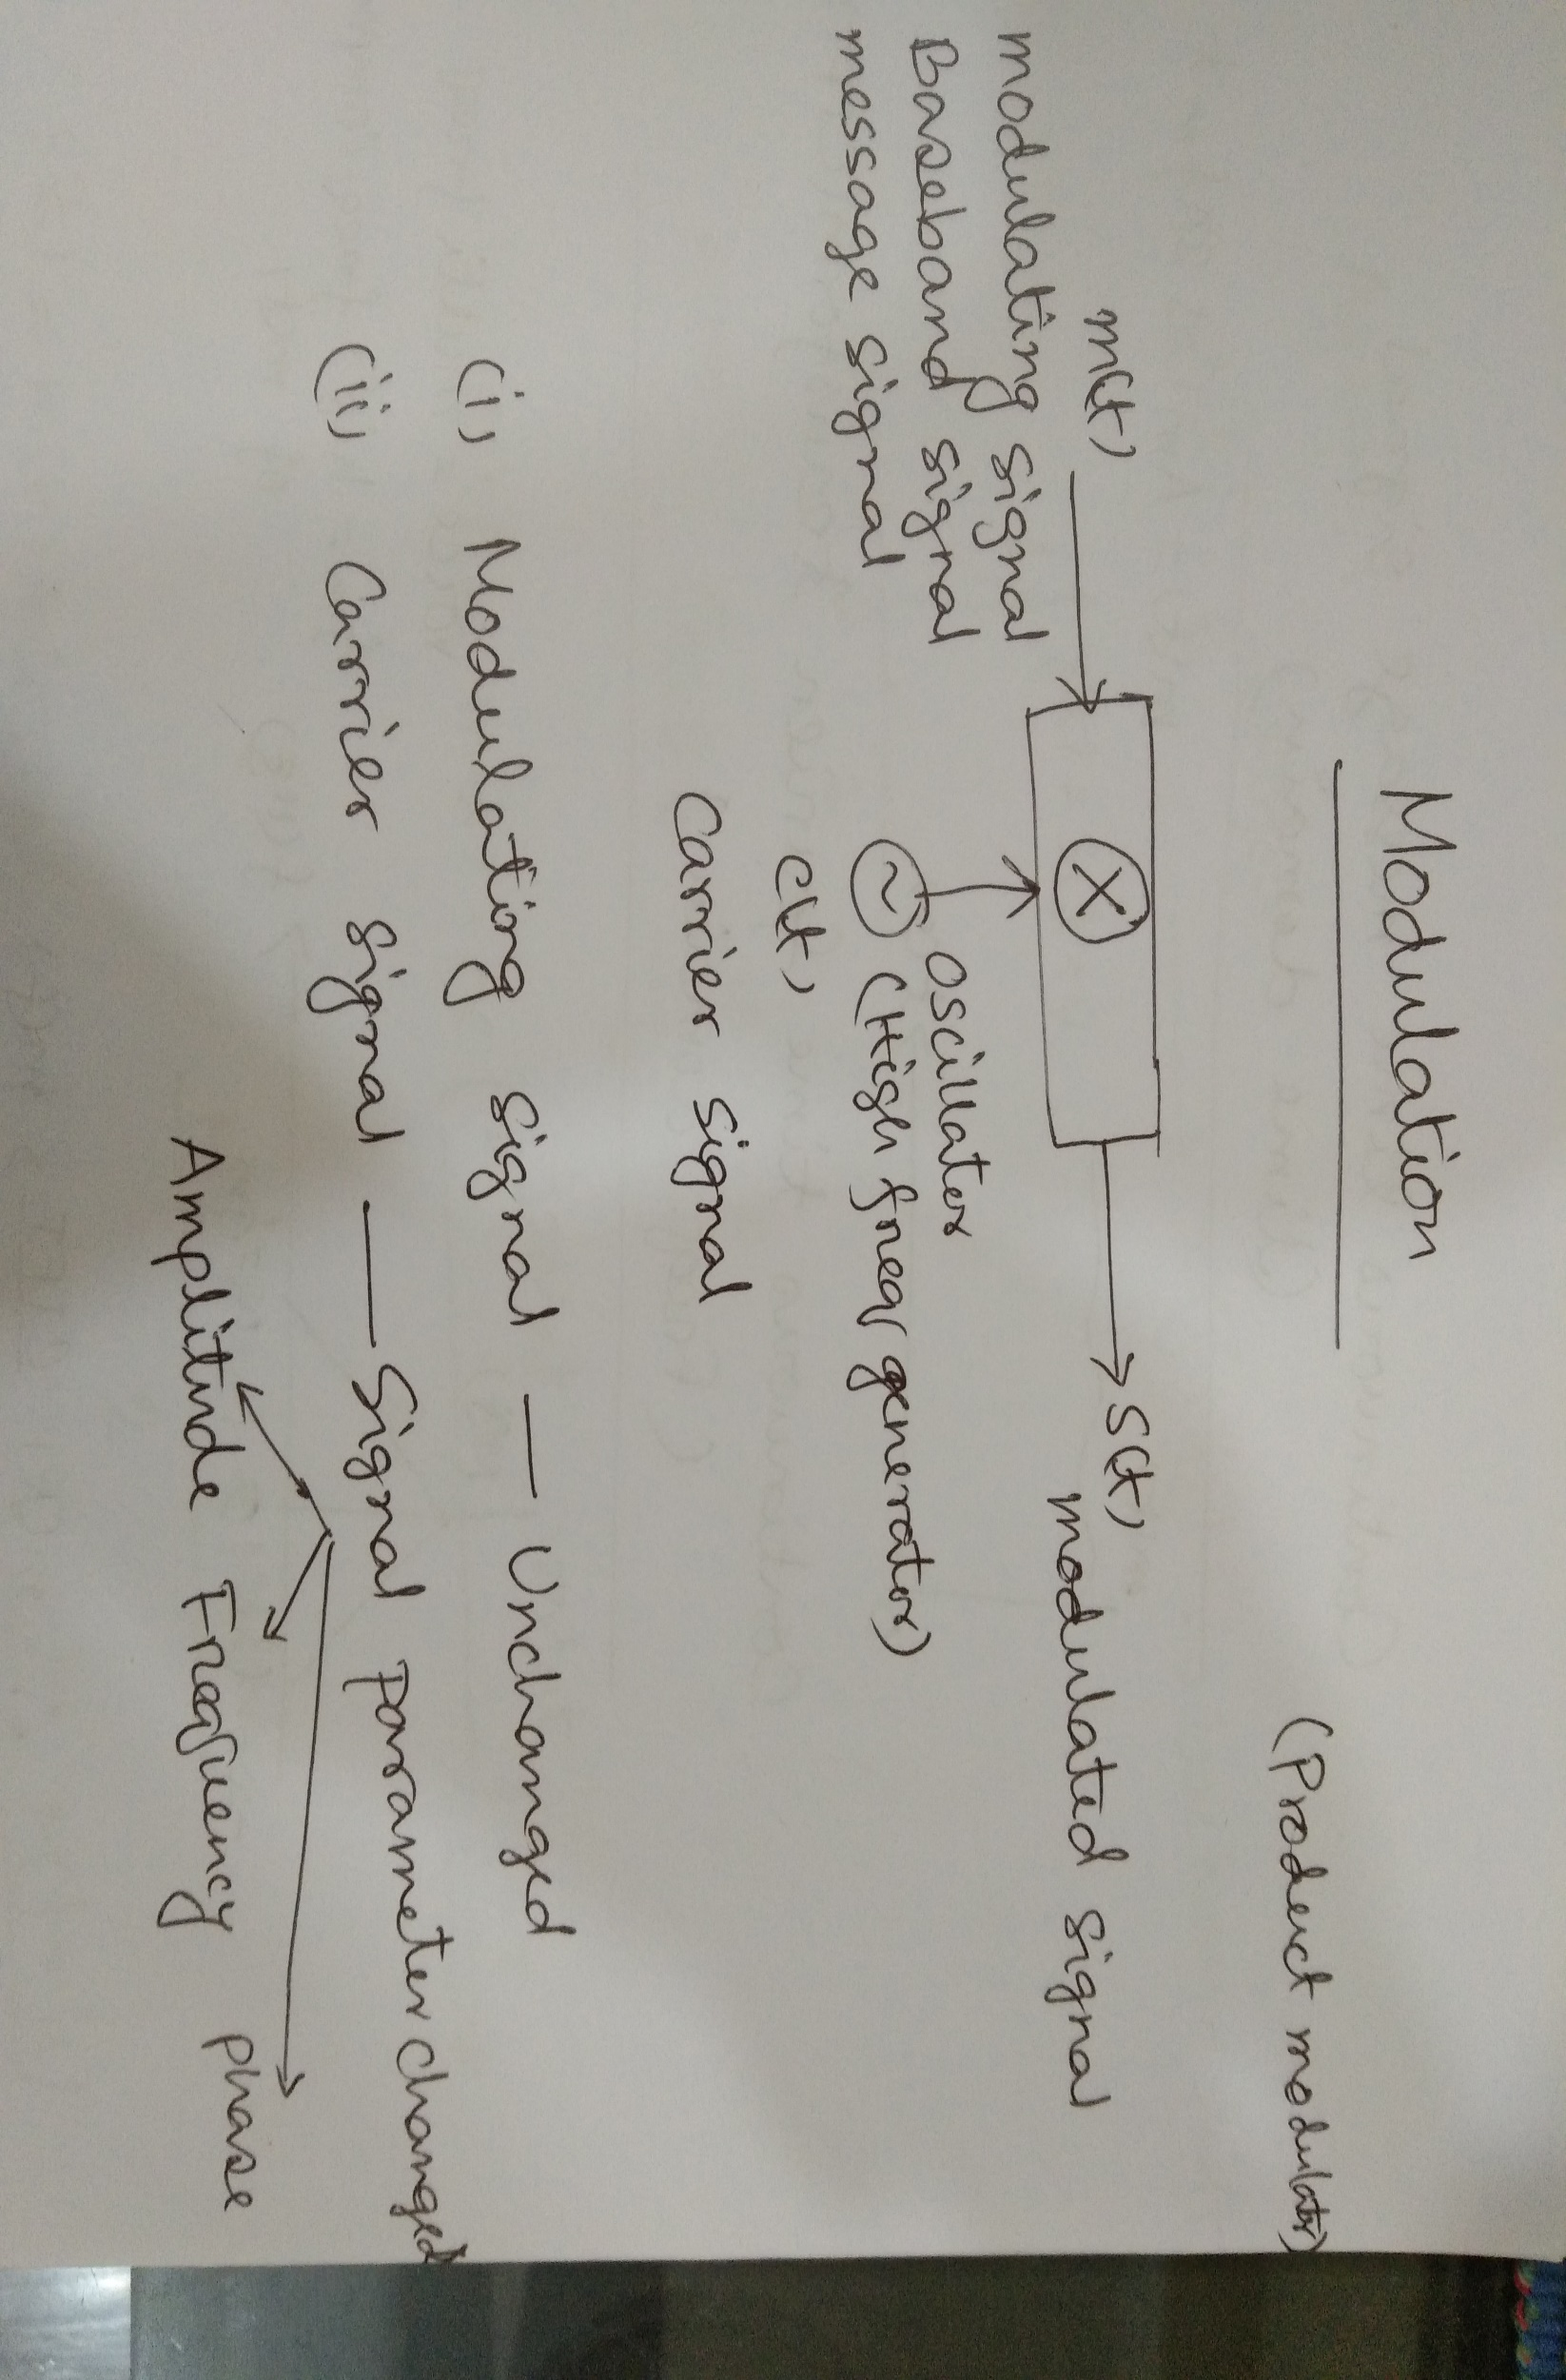 Modulation
(Product modulator)
m(t)
S(t)
modulating signal
modulated signal
Baseband signal
message signal
X
oscillator
~ (High freaq generator)
c(t)
Carrier signal
(i) Modulating signal — Unchanged
(ii) Carrier signal — Signal parameter changed
Amplitude Freaquency phase